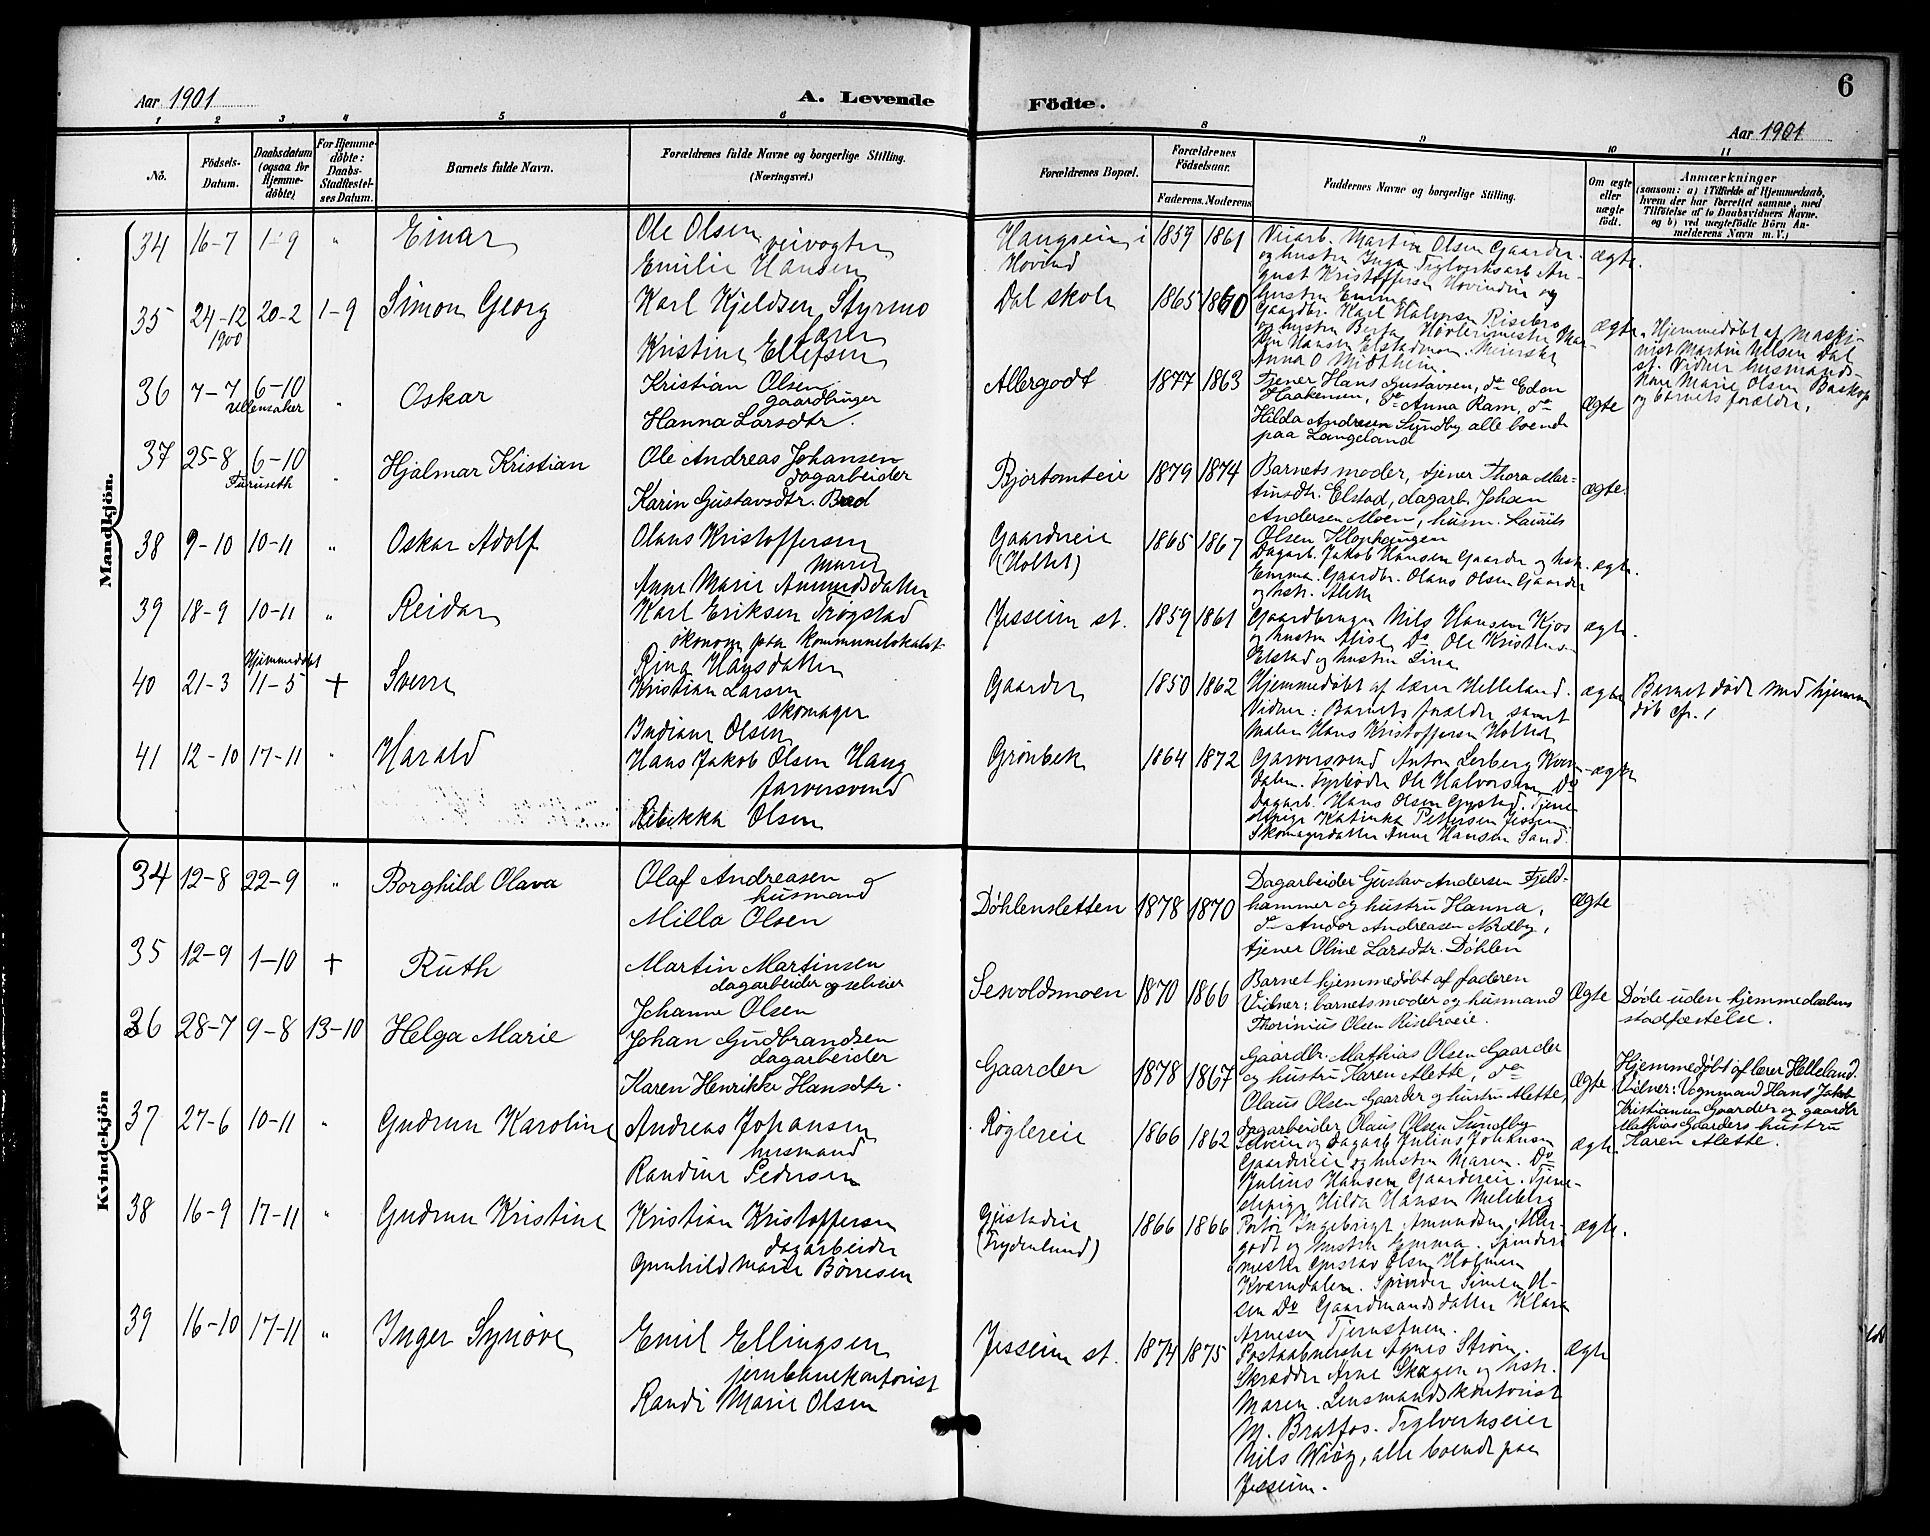 6
Aar 1901
A. Levende
Födte.
Aar 1901
1 2 3 4 5 6 8 9 10 11
No.
Födsels-Datum.
Daabsdatum (ogsaa for Hjemme-döbte)
For Hjemme-döbte: Daabs-Stadfæstel-ses Datum.
Barnets fulde Navn.
Forældrenes fulde Navne og borgerlige Stilling.
(Næringsvei.)
Forældrenes Bopæl.
Forældrenes Födselsaar.
Faderens. Moderens
Faddernes Navne og borgerlige Stilling.
Om ægte eller uægte født.
Anmærkninger
(saasom: a) i Tilfælde af Hjemmedaab, hvem der har forrettet samme, med Tilföielse af to Daabsvidners Navne. og b) ved uægtefödte Börn An-melderens Navn m. V.)
Mandkjön.
34 16-7 1-9 " Einar
Ole Olsen veivogter
Emilie Hansen
Haugseie i Hovind
1859 1861
Veiarb. Martin Olsen Gaarder
og hustru Inga. Teglverksarb. Au-
gust Kristoffersen Hovindeie og
hustru Emma
ægte.
35 24-12 1900 20-2 1-9 Simon Georg
Karl Kjeldsen Styrmo
lærer
Kristine Ellefsen
Dal skole
1865 1860
Gaardbr. Karl Halvorsen Risebro
og hustru Berta. Høvlerimester Mar-
tin Hansen Elstadmoen. Meierske
Anna O Midtheim.
ægte.
Hjemmedøbt af Maski-
nist Martin Nilsen Dal
st. Vidner husmands-
kone Marie Olsen Bakkep
og barnets forældre.
36 7-7 6-10 Ullensaker " Oskar
Kristian Olsen
gaardbruger
Hanna Larsdtr.
Algergodt
1877 1863
Tjener Hans Gustavsen, do Edon
Haakensen, do Anna Ram, do
Hilda Andresen Sundby alle boende
paa Langeland
Ægte
37 25-8 6-10 Furuseth " Hjalmar Kristian
Ole Andreas Johansen
dagarbeider
Karin Gustavsdtr. Brad
Bjørtomteie
1879 1874
Barnets moder, tjener Thora Mar-
tinsdtr. Elstad, dagarb. Johan
Andersen Moen, husm. Laurits
Olsen Klophaugen
ægte.
38 9-10 10-11 " Oskar Adolf
Olaus Kristoffersen
murer
Anne Marie Amundsdatter
Gaardereie
(Holtet)
1865 1867
Dagarb. Jakob Hansen Gaarder og hstr.
Emma. Gaardbr. Olaus Olsen Gaarder
og hstr. Alette
ægte.
39 18-9 10-11 " Reidar
Karl Eriksen Trøgstad
økonom paa kommunelokalet
Rina Hansdatter
Jessheim st.
1859 1861
Gaardbruger Nils Hansen Kjos
og hustru Alise. Do Ole Kristians-
Elstad og hustru Lina
ægte.
40 21-3 Hjemmedøbt 11-5 + Sverre
Kristian Larsen
skomager
Indiane Olsen
Gaarder
1850 1862
Hjemmedøbt af lærer Helleland.
Vidner: Barnets forældre samt
Maler Hans Kristoffersen Holtet
ægte
Barnet døde med hjemme
døb
41 12-10 17-11 " Harald
Hans Jakob Olsen Haug
farversvend
Rebekka Olsen
Grønbek
1864 1872
Garversvend Anton Lerberg Kvern-
dalen. Fyrbøder Ole Halvorsen Do
Dagarb. Hans Olsen Gystad. Tjene-
stepige Katinka Pettersen Jessheim
Skomagerdatter Anne Hansen Sand.
ægte
Kvindekjön
34 12-8 22-9 " Borghild Olava
Olaf Andreasen
husmand
Milla Olsen
Døhlensletten
1878 1870
Dagarbeider Gustav Andersen Fjeld-
hammer og hustru Hanna,
do Andor Andreasen Nordby,
tjener Oline Larsdtr. Døhlen
Ægte
35 12-9 1-10 + Ruth
Martin Martinsen
dagarbeider og selveier
Johanne Olsen
Sesvoldsmoen
1870 1866
Barnet hjemmedøbt af faderen
Vidner: barnets moder og husmand
Thorinius Olsen Risebroeie.
Ægte
Døde uden hjemmedaabens
stadfæstelse.
36 28-7 9-8 13-10 Helga Marie
Johan Gudbrandsen
dagarbeider
Karen Henrikke Hansdtr.
Gaarder
1878 1867
Gaardbr. Mathias Olsen Gaarder
og hustru Karen Alette, do
Olaus Olsen Gaarder og hustru Alette,
dagarbeider Olaus Olsen Sundby
Ægte
Hjemmedøbt af lærer Helleland.
Vidner: Vognmand Hans Jakob
Kristiansen Gaarder og gaardbr
Mathias Gaarders hustru
Karen Alette.
37 27-6 10-11 " Gudrun Karoline
Andreas Johansen
husmand
Randine Pedersen
Røglereie
1866 1862
Selveier og Dagarb. Julius Johansen
Gaardereie og hustru Maren. Do
Julius Hansen Gaardereie. Tjene-
stepige Hilda Hansen Melsberg
ægte
38 16-9 17-11 " Gudrun Kristine
Kristian Kristoffersen
dagarbeider
Gunhild Marie Børresen
Gjestadeie
(Frydenlund)
1866 1866
Portør Ingebrigt Amundsen Alger-
godt og hustru Emma. Spinderi
mester Gustav Olsen Holmen
Kverndalen. Spinder Simen Ol-
sen Do Gaardmandsdatter Klara
Arnesen Tjernstuen.
ægte.
39 16-10 17-11 " Inger Synöve
Emil Ellingsen
jernbanekontorist
Randi Marie Olsen
Jessheim st.
1874 1875
Postaabnerske Agnes Strøm.
Skrædder Arne Skagen og hstr.
Maren. Lensmandskontorist
M. Bratfos. Teglverkseier
Nils Wiøg, alle boende paa
Jessheim.
ægte